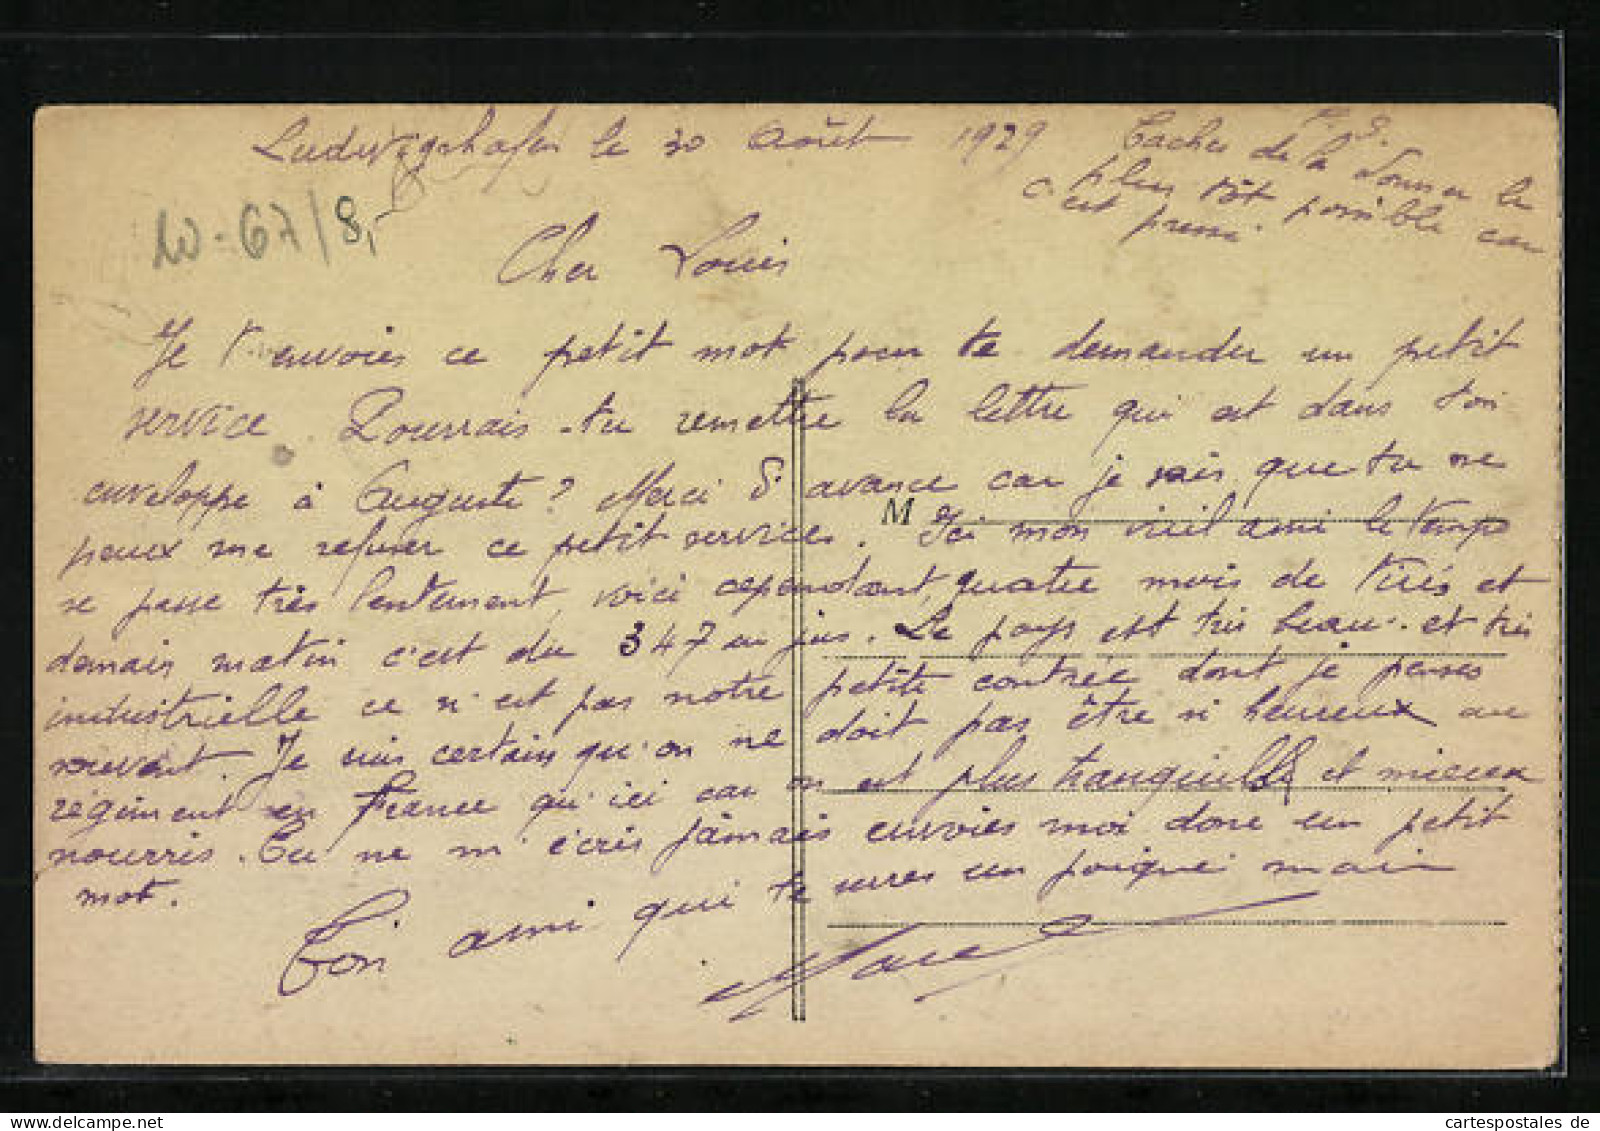 Ludwigshafen le 30 Août 1929
P.S.
Taches de la donner le
plus tôt possible car
c'est pressé.
W-67/8,-
Cher Louis
Je t'envoies ce petit mot pour te demander un petit
service. Pourrais-tu remettre la lettre qui est dans ton
enveloppe à Auguste? Merci d'avance car je sais que tu ne
peux me refuser ce petit services. Ici mon vieil ami le temps
M
se passe très lentement, voici cependant, quatre mois de tirés et
demais matin c'est du 347 au jus. Le pays est très beau et très
industrielle ce n'est pas notre petite contrée dont je penses
souvent. Je suis certain qu'on ne doit pas être si heureux au
régiment en France qu'ici car on est plus tranquille et mieux
nourris. Tu ne m'écris jamais envoies moi donc un petit
mot.
Ton ami qui te serres un poigné main
Marcel
cartespostales de